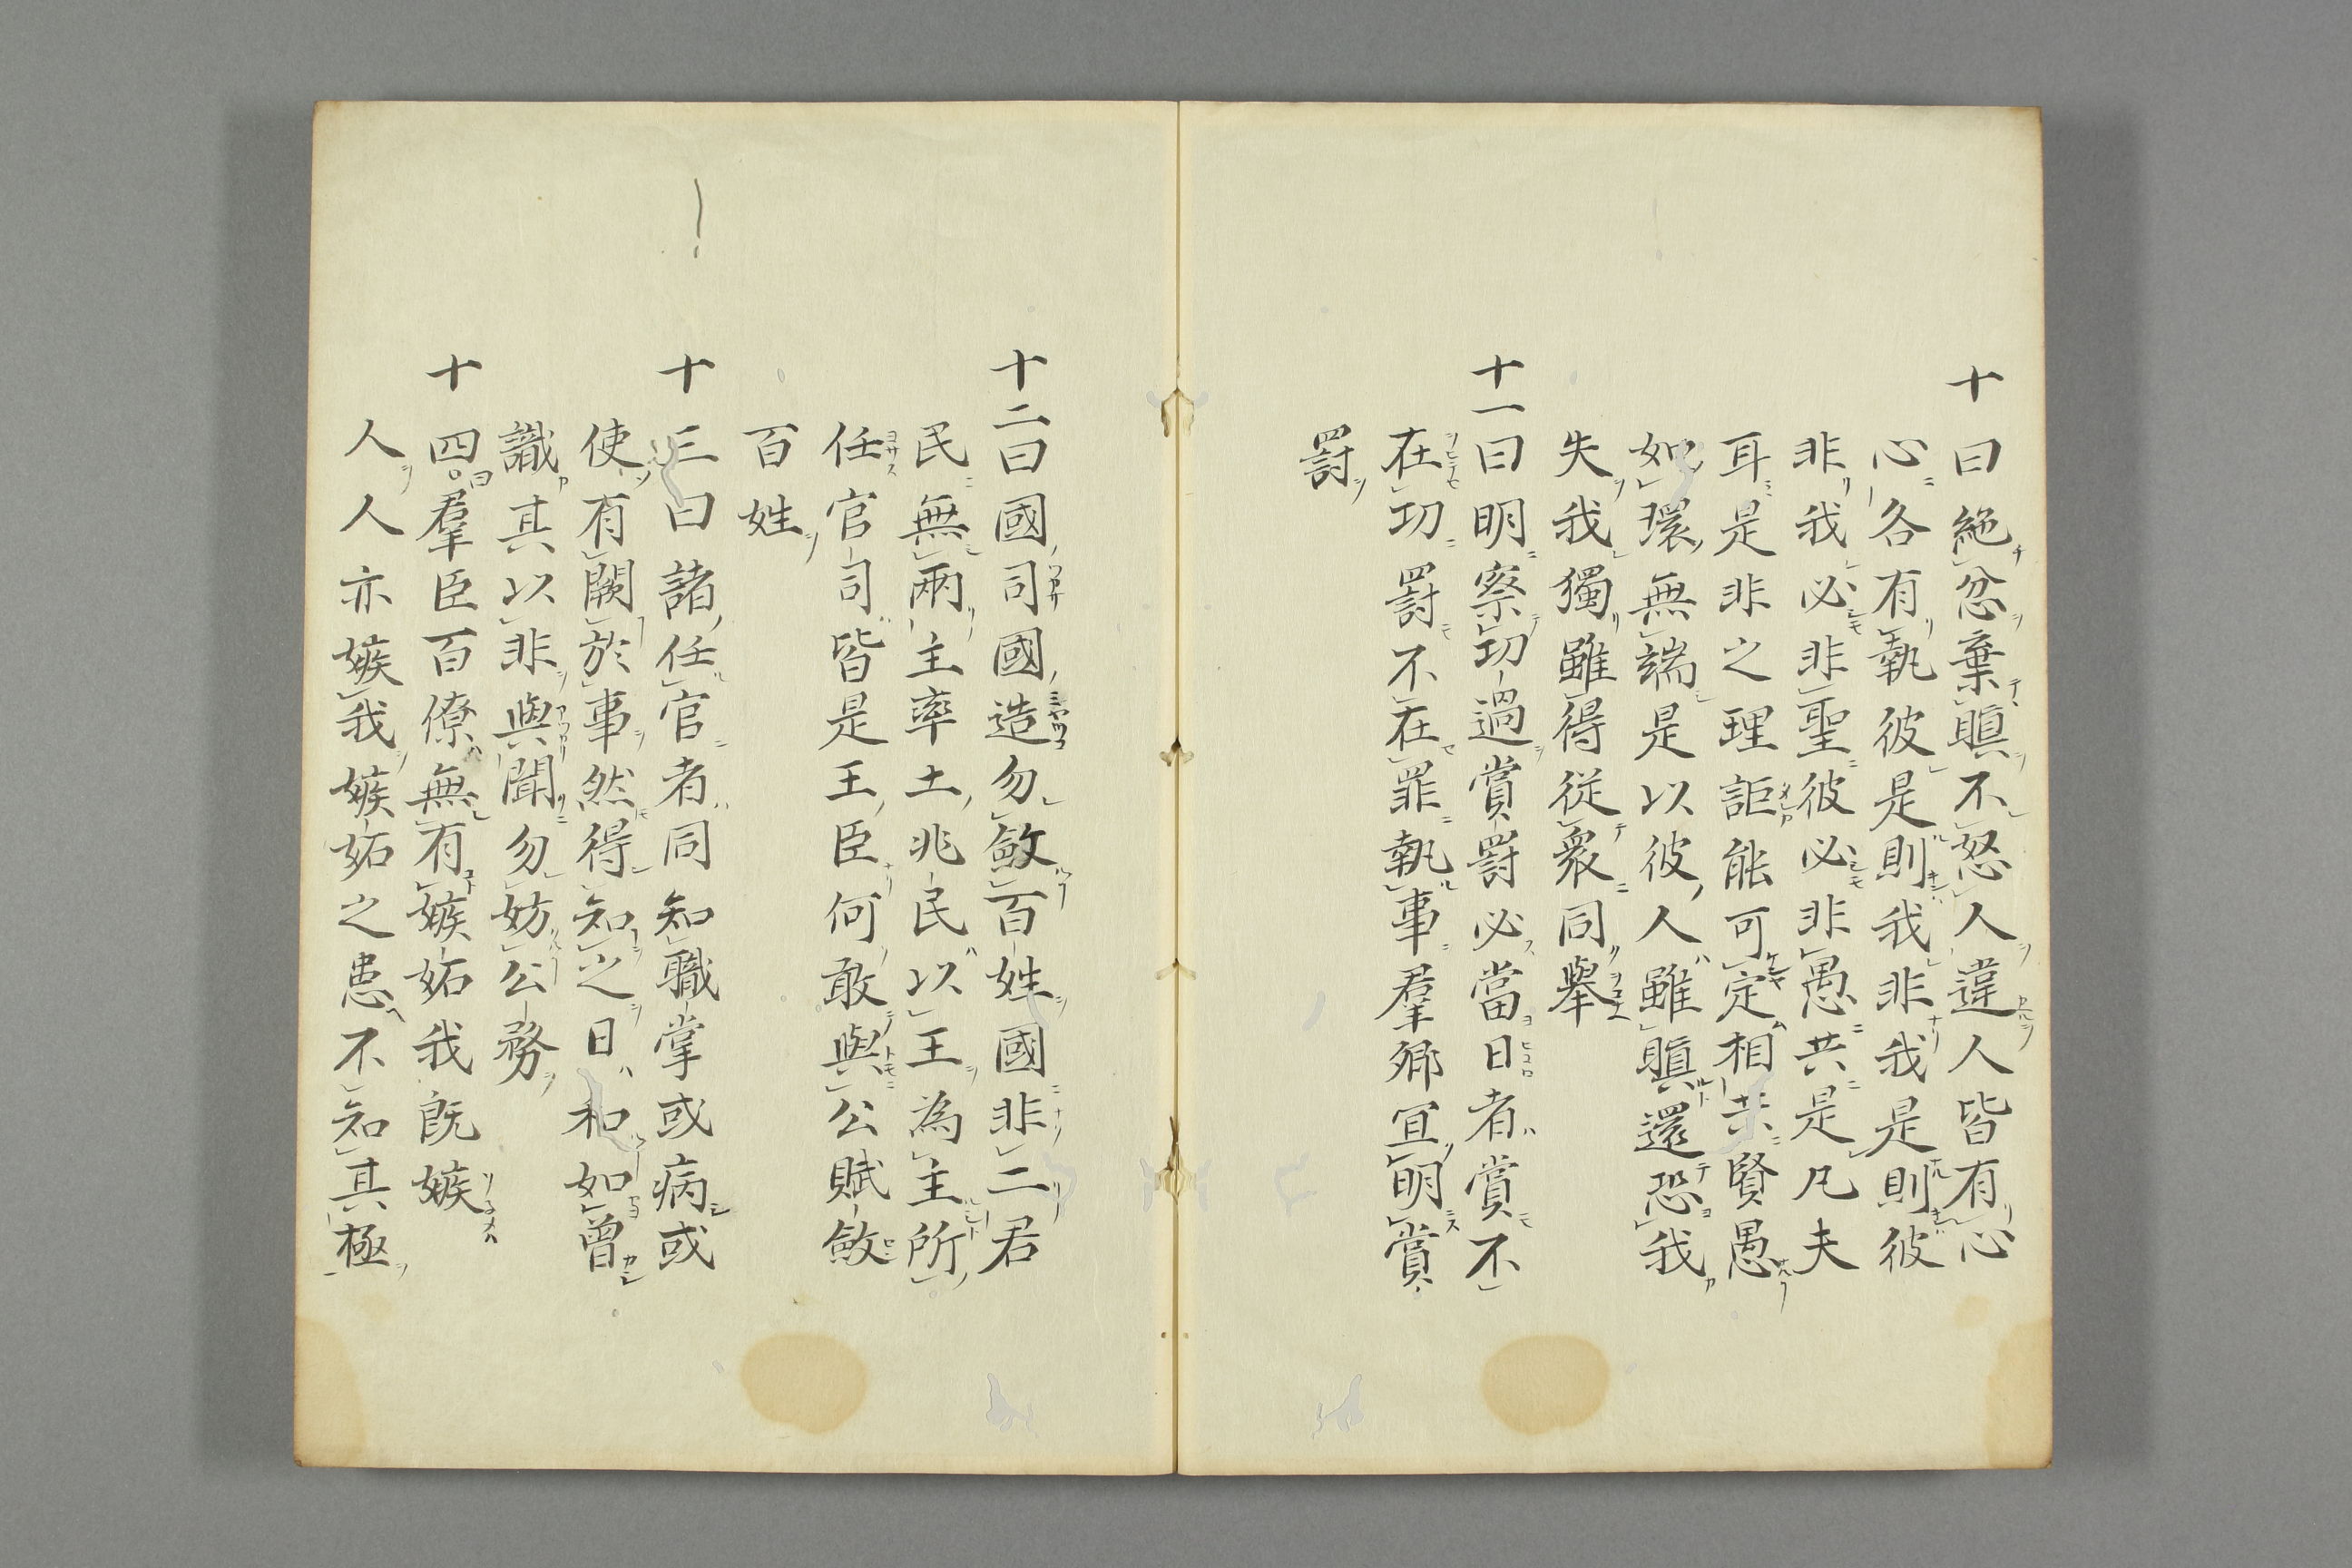 十曰絶忿棄瞋不怒人違人皆有心
心各有執彼是則我非我是則彼
非我必非聖彼必非愚共是凡夫
耳是非之理詎能可定相共賢愚
如環無端是以彼人雖瞋還恐我
失我獨雖得從衆同舉
十一曰明察功過賞罰必當日者賞不
在功罰不在罪執事羣卿宜明賞
罰
十二曰國司國造勿斂百姓國非二君
民無兩主率土兆民以王為主所
任官司皆是王臣何敢與公賦斂
百姓
十三曰諸任官者同知職掌或病或
使有闕於事然得知之日和如曾
識其以非與聞勿妨公務
十四曰羣臣百僚無有嫉妬我既嫉
人人亦嫉我嫉妬之患不知其極